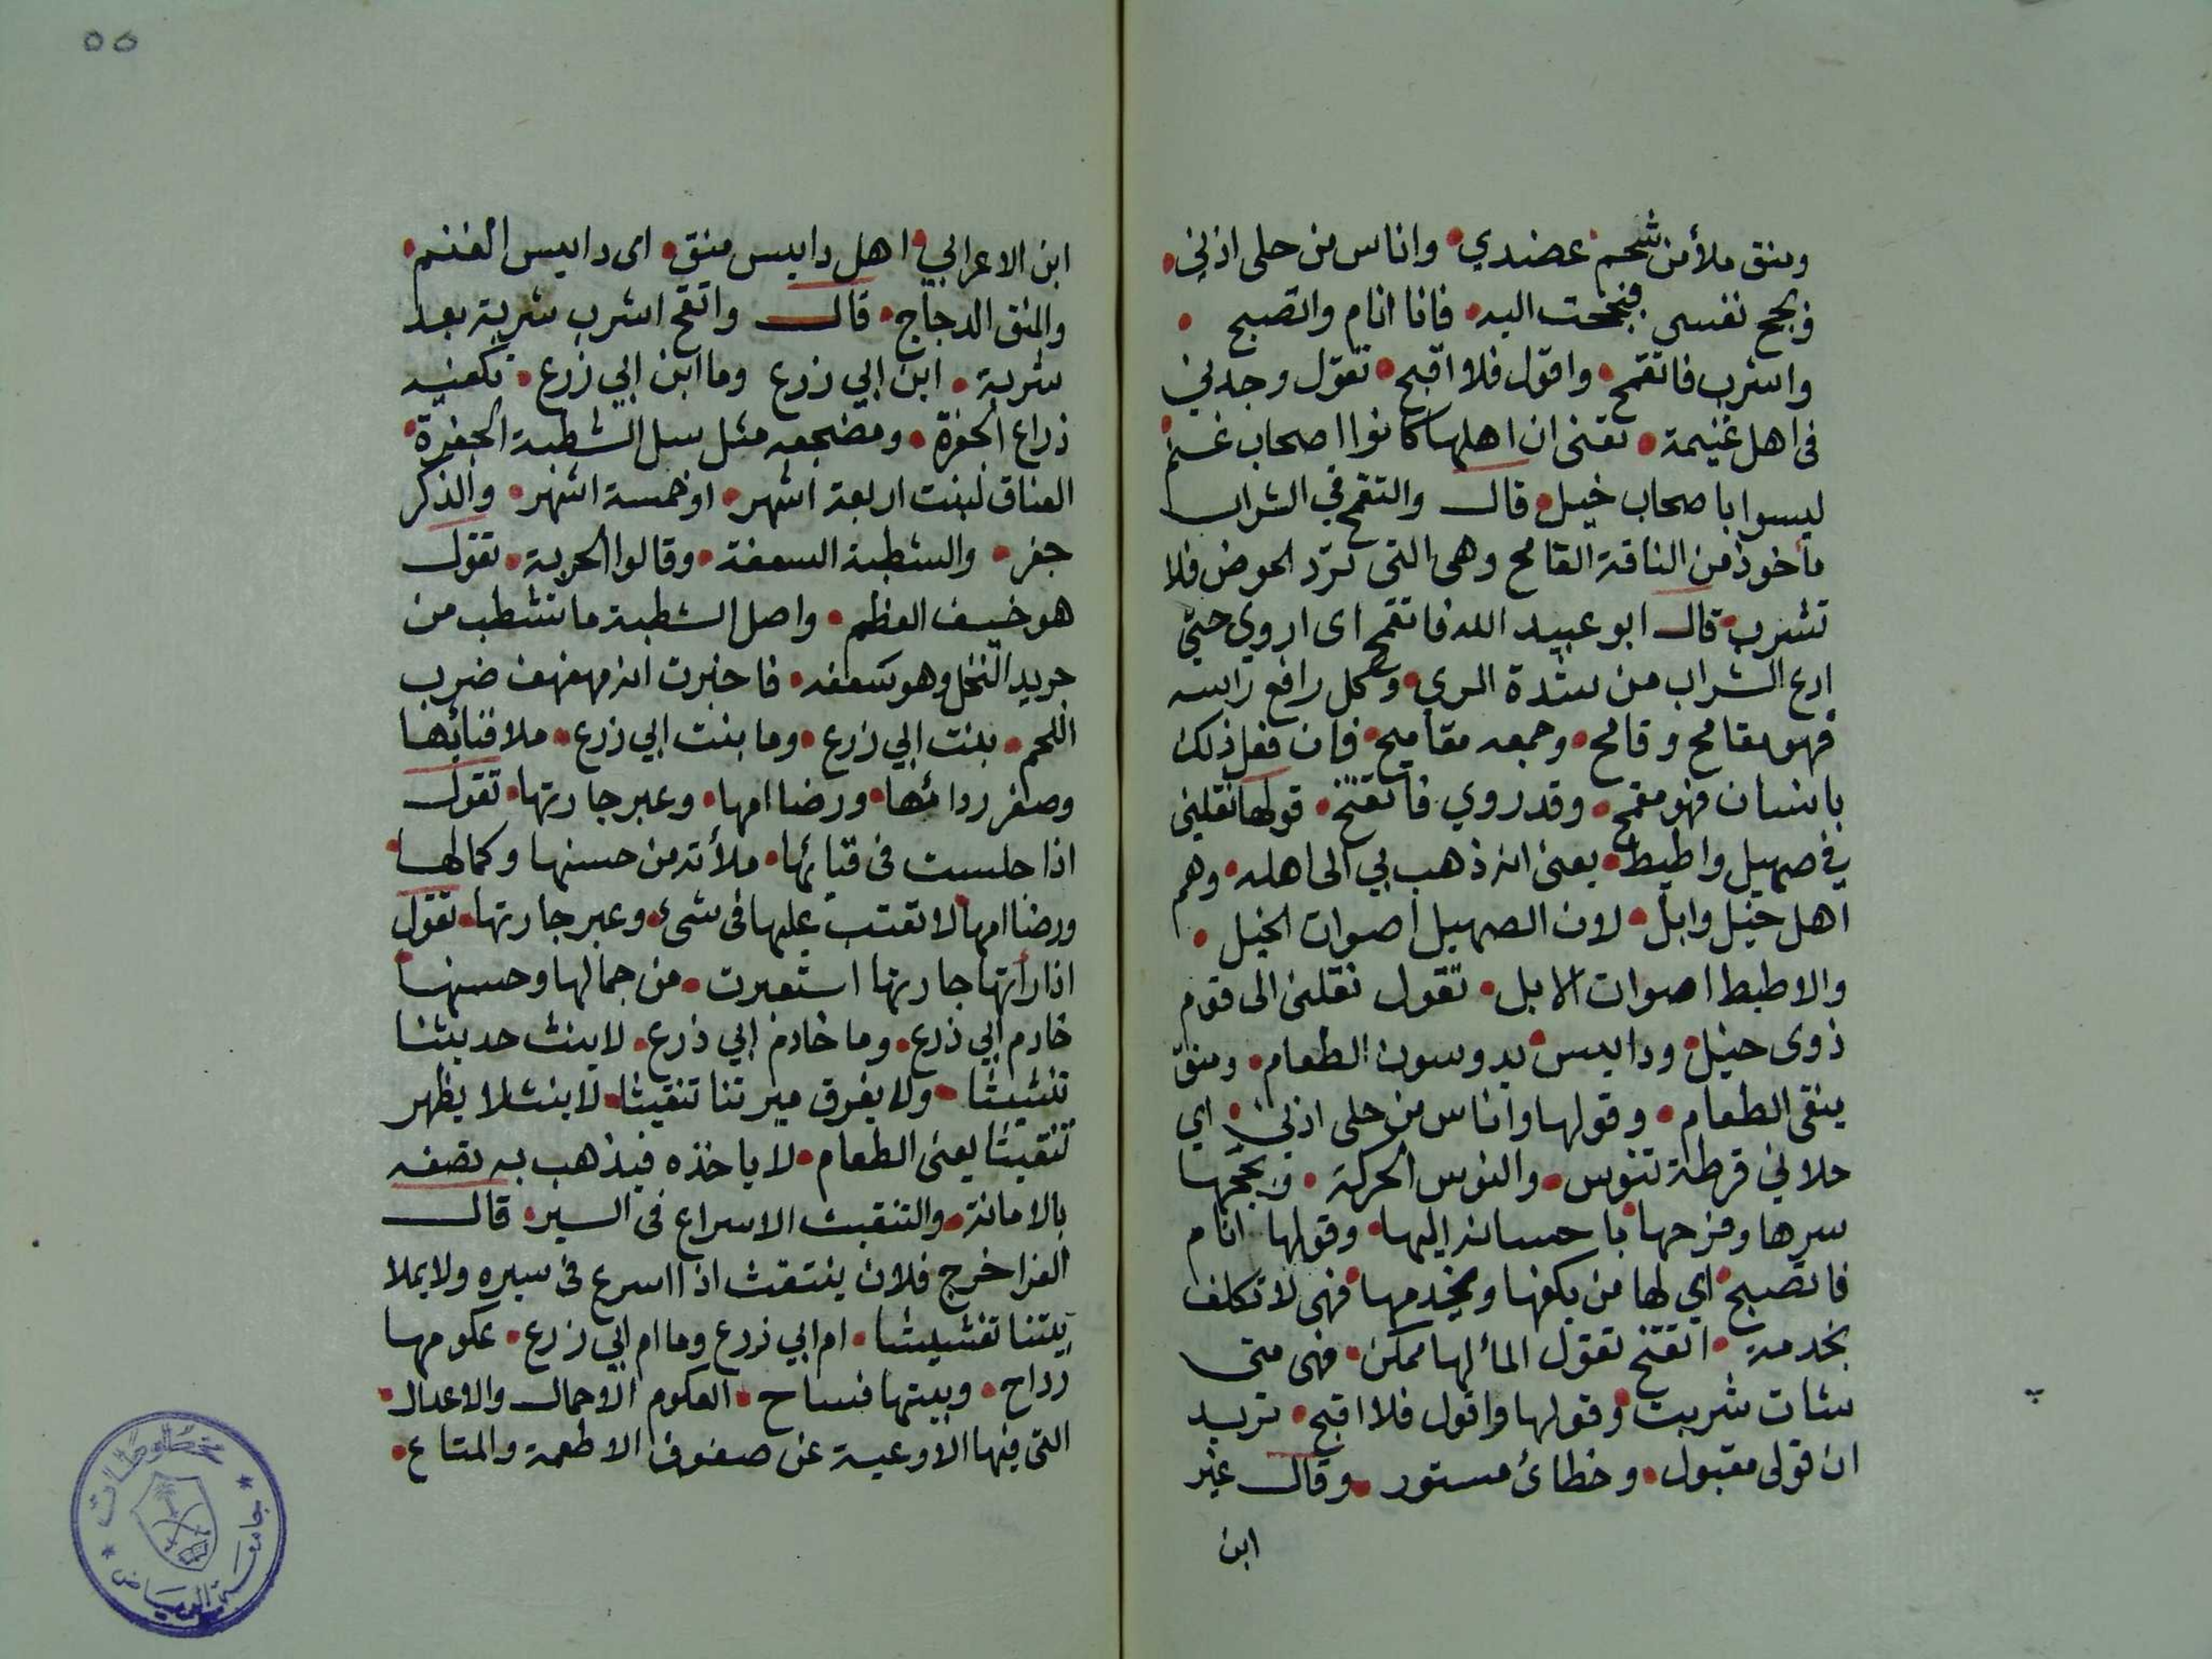 ومنق ملأ من شحم عضدي • واناس من حلى اذني •
فبجح نفسى فبجحت اليه • فانا انام واتصبح •
واشرب فاتقمح • واقول فلا اقبح • تقول وجدني
فى اهل غنيمة • تعنى ان اهلها كانوا اصحاب غنم •
ليسوا باصحاب خيل • قال والتقمح في الشراب
مأخوذ من الناقة القامح وهى التى ترد الحوض فلا
تشرب • قال ابو عبيد الله فاتقمح اى اروي حتى
ادع الشراب من شدة الري • وكل رافع راسه
فهو مقامح وقامح • وجمعه مقاميح • فان فعل ذلك
بانسان فهو مقمح • وقد روي فاتقنح • قولها نقلني
في صهيل واطيط • يعنى انه ذهب بي الى اهله • وهم
اهل خيل وابل • لان الصهيل اصوات الخيل •
والاطيط اصوات الابل • تقول نقلنى الى قوم
ذوى خيل • ودايس • يدوسون الطعام • ومنق
ينقى الطعام • وقولها واناس من حلى اذني • اي
حلاني قرطة تنوس • والنوس الحركة • وبجحها
سرها وفرحها • باحسانه اليها • وقولها انام
فاتصبح • اي لها من يكفها ويخدمها • فهى لا تكلف
بخدمة • اتقنح تقول المأ لها ممكن • فهى متى
شات شربت • وقولها واقول فلا اقبح • تريد
ان قولى مقبول • وخطائ مستور • وقال غير
ابن
٥٥
ابن الاعرابي • اهل دايس منق • اى دايس الغنم •
والمنق الدجاج • قال واتقح اشرب شربة بعد
شربة • ابن ابي زرع وما ابن ابي زرع • تكفيه
ذراع الجفرة • ومضجعه مثل سل الشطبة الجفرة •
العناق لبنت اربعة اشهر • او خمسة اشهر • والذكر
جفر • والشطبة السعفة • وقالوا الحربة • تقول
هو خفيف العظم • واصل الشطبة ما تشطب من
جريد النخل وهو سعفه • فاخبرت انه مهفهف ضرب
اللحم • بنت ابي زرع • وما بنت ابي زرع • ملا فنائها
وصفر ردائها • ورضا امها • وعبر جارتها • تقول
اذا جلست فى قبائها • ملأته من حسنها وكمالها •
ورضا امها لا تعتب عليها فى شئ • وعبر جارتها • تقول
اذا رأتها جارتها استعبرت • من جمالها وحسنها •
خادم ابي زرع • وما خادم ابي زرع • لا ينث حديثنا
تنثيثا • ولا يفرق ميرتنا تنقيثا • لا ينث لا يظهر
تنقيثا يعنى الطعام • لا ياخذه فيذهب به تصفه
بالامانة • والتنقيث الاسراع فى السير • قال
الفرا خرج فلان ينتقث اذا اسرع فى سيره ولا يملا
بيتنا تغشيشا • ام ابي زرع وما ام ابي زرع • عكومها
رداح • وبيتها فساح • العكوم الاحمال والاعدال •
التى فيها الاوعية عن صفوف الاطعمة والمتاع •
مخطوطات
جامعة الرياض